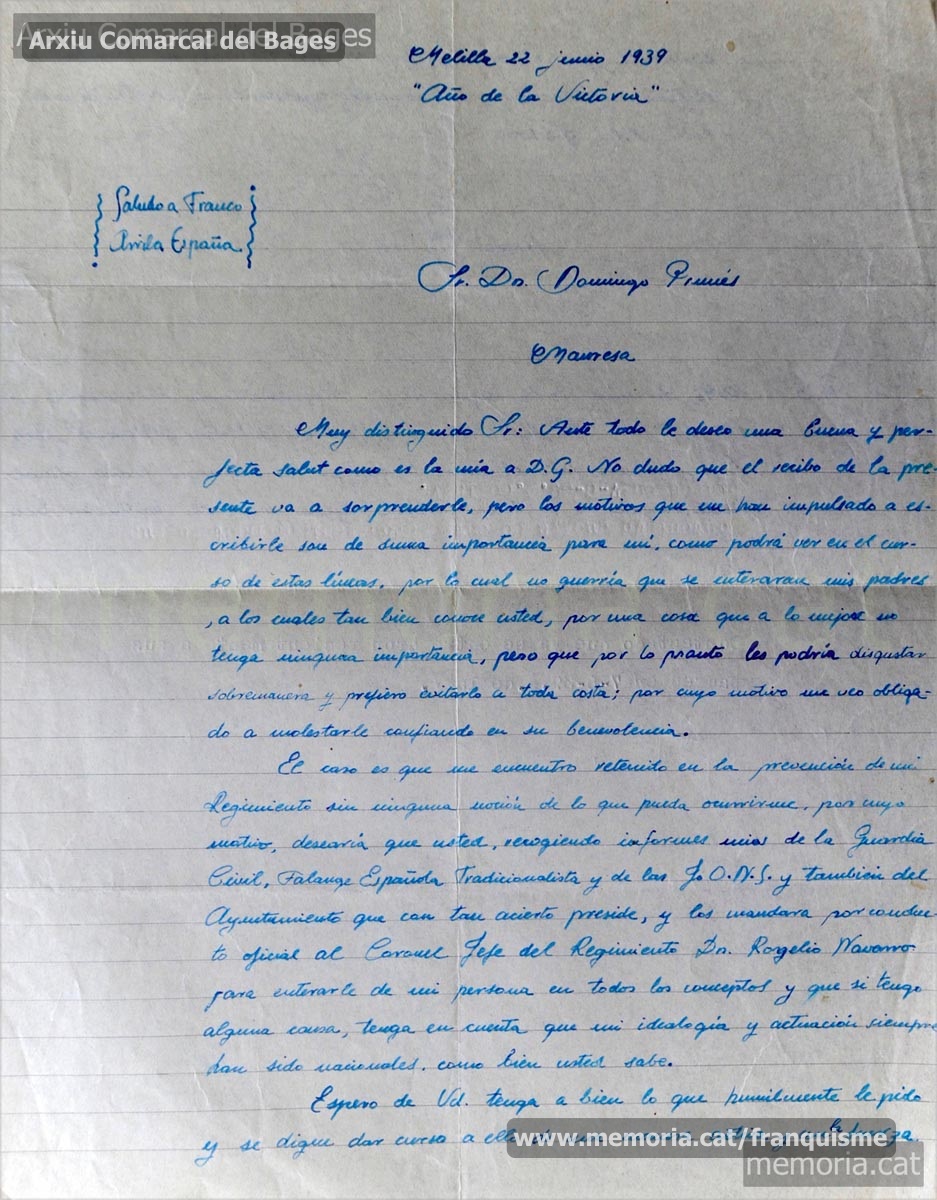 Arxiu Comarcal del Bages
Arxiu Comarcal del Bages
Melilla 22 junio 1939
"Año de la Victoria"
Saludo a Franco
Arriba España
Sr. Dn. Domingo
Manresa
Muy distinguido Sr: Ante todo le deseo una buena y per-
fecta salut como es la mia a D.G. No dudo que el recibo de la pre-
sente va a sorprenderle, pero los motivos que me han impulsado a es-
cribirle son de suma importancia para mí, como podrá ver en el cur-
so de estas líneas, por lo cual no querría que se enteraran mis padres
, a los cuales tan bien conoce usted, por una cosa que a lo mejor no
tenga ninguna importancia, pero que por lo pronto les podría disgustar
sobremanera y prefiero evitarlo a toda costa; por cuyo motivo me veo obliga-
do a molestarle confiando en su benevolencia.
El caso es que me encuentro retenido en la prevención de mi
Regimiento sin ninguna noción de lo que pueda ocurrirme, por cuyo
motivo, desearía que usted, recogiendo informes mios de la Guardia
Civil, Falange Española Tradicionalista y de las J.O.N.S. y también del
Ayuntamiento que con tan acierto preside, y los mandara por conduc-
to oficial al Coronel Jefe del Regimiento Dn. Rogelio Navarro
para enterarle de mi persona en todos los conceptos y que si tengo
alguna causa, tenga en cuenta que mi idealogía y actuación siempre
han sido nacionales. como bien usted sabe.
Espero de Vd. tenga a bien lo que humilmente le pido
y se digne dar curso a
www.memoria.cat/franquisme
memoria.cat